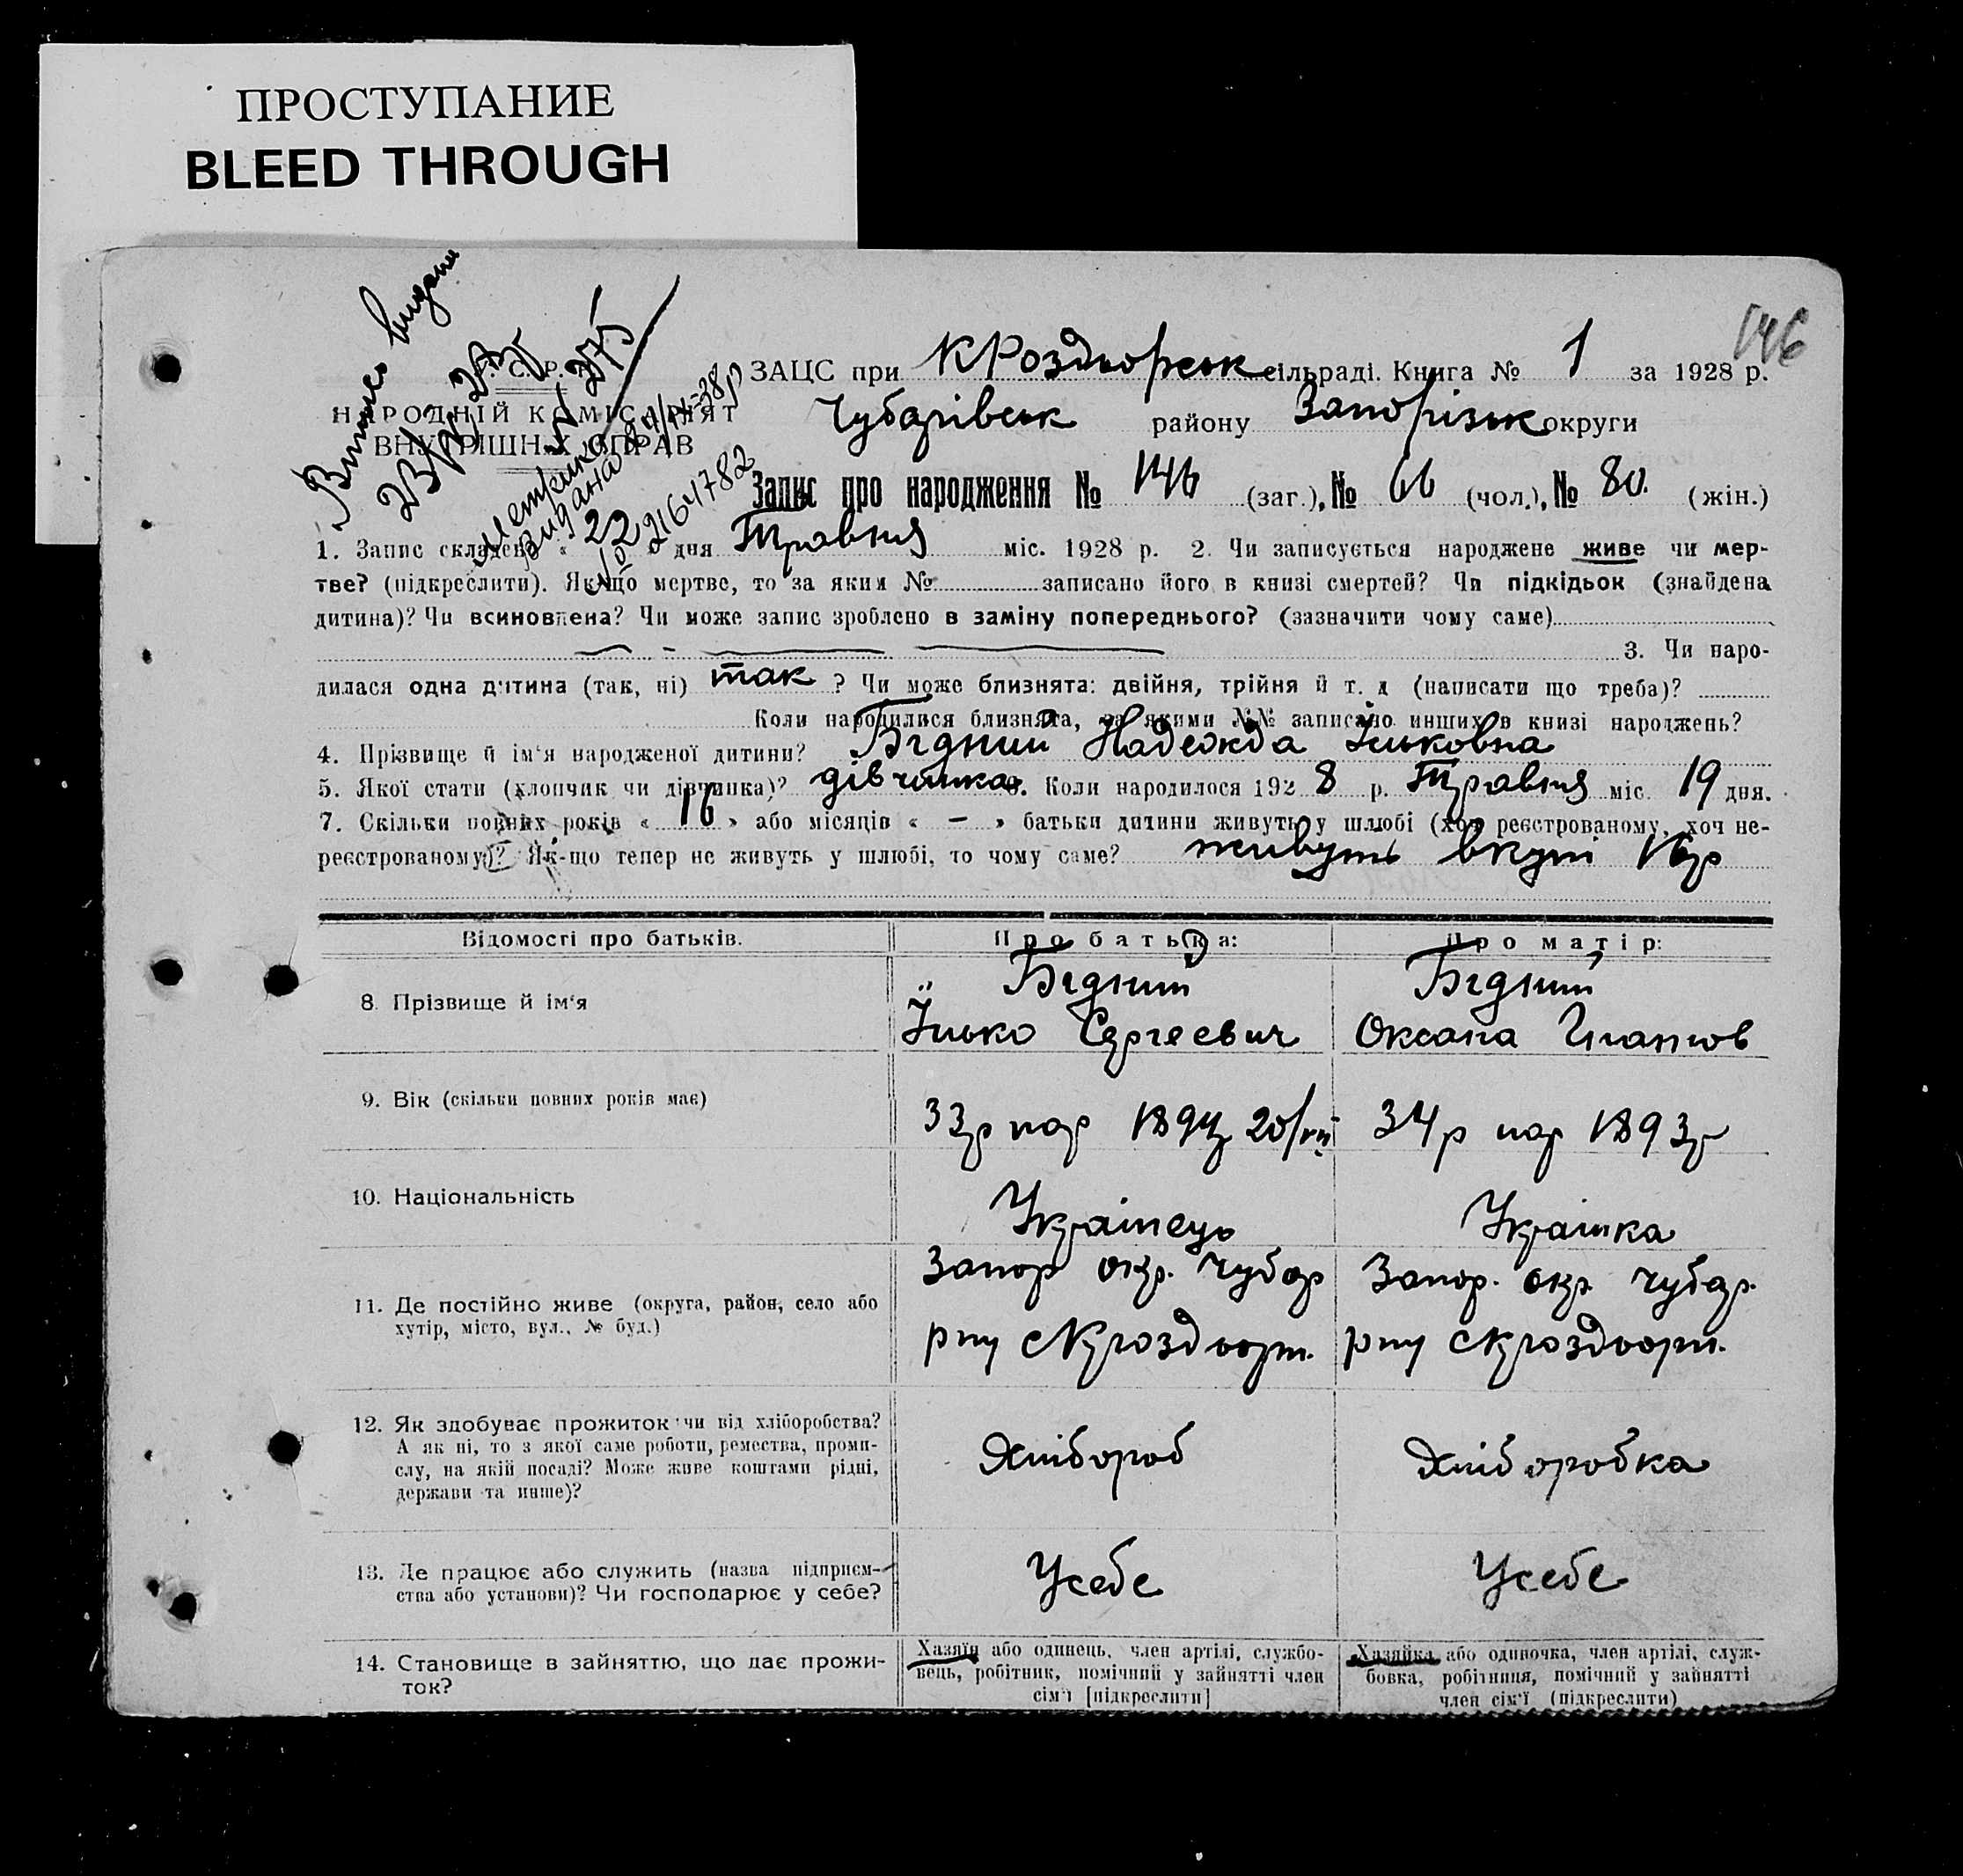 ПРОСТУПАНИЕ
BLEED THROUGH
146
Витяг видано
У. С. Р. Р.
НАРОДНІЙ КОМІСАРІЯТ
ВНУТРІШНІХ СПРАВ
Метрика
видана
№ 2164782
ЗАЦС при КРоздорськ сільраді. Книга № 1 за 1928 р.
Чубарівськ району Запорізьк округи
Запис про народження № 146 (заг.), № 66 (чол.), № 80. (жін.)
1. Запис складено « 22 » дня Травня міс. 1928 р. 2. Чи записується народжене живе чи мер-
тве? (підкреслити). Якщо мертве, то за яким № записано його в книзі смертей? Чи підкідьок (знайдена
дитина)? Чи всиновлена? Чи може запис зроблено в заміну попереднього? (зазначити чому саме)
3. Чи наро-
дилася одна дитина (так, ні) так ? Чи може близнята: двійня, трійня й т. д (написати що треба)?
Коли народилися близнята, за якими №№ записано инших в книзі народжень?
4. Прізвище й ім'я народженої дитини? Бідний Надежда Ільковна
5. Якої стати (хлопчик чи дівчинка)? дівчинка 6. Коли народилося 192 8 р. Травня міс. 19 дня.
7. Скільки повних років « 16 » або місяців « — » батьки дитини живуть у шлюбі (хоч реєстрованому, хоч не-
реєстрованому)? Як-що тепер не живуть у шлюбі, то чому саме? живуть вкупі 16р
Відомості про батьків. Про батька: Про матір:
8. Прізвище й ім'я
Бідний
Ілько Сергеевич
Бідний
Оксана Игнатов
9. Вік (скільки повних років має)
33р нар 1894р 20/VII
34р нар 1893р
10. Національність
Українець
Українка
11. Де постійно живе (округа, район, село або
хутір, місто, вул., № буд.)
Запор окр. Чубар
рну с Кроздорт.
Запор. окр. Чубар.
рну с Кроздорт.
12. Як здобуває прожиток чи від хліборобства?
А як ні, то з якої саме роботи, ремества, проми-
слу, на якій посаді? Може живе коштами рідні,
держави та инше)?
Хлібороб
Хліборобка
13. Де працює або служить (назва підприєм-
ства або установи)? Чи господарює у себе?
Усебе
Усебе
14. Становище в зайняттю, що дає прожи-
ток?
Хазяїн або одинець, член артілі, службо-
вець, робітник, помічний у зайнятті член
сім'ї [підкреслити]
Хазяйка або одиночка, член артілі, служ-
бовка, робітниця, помічний у зайнятті
член сім'ї (підкреслити)